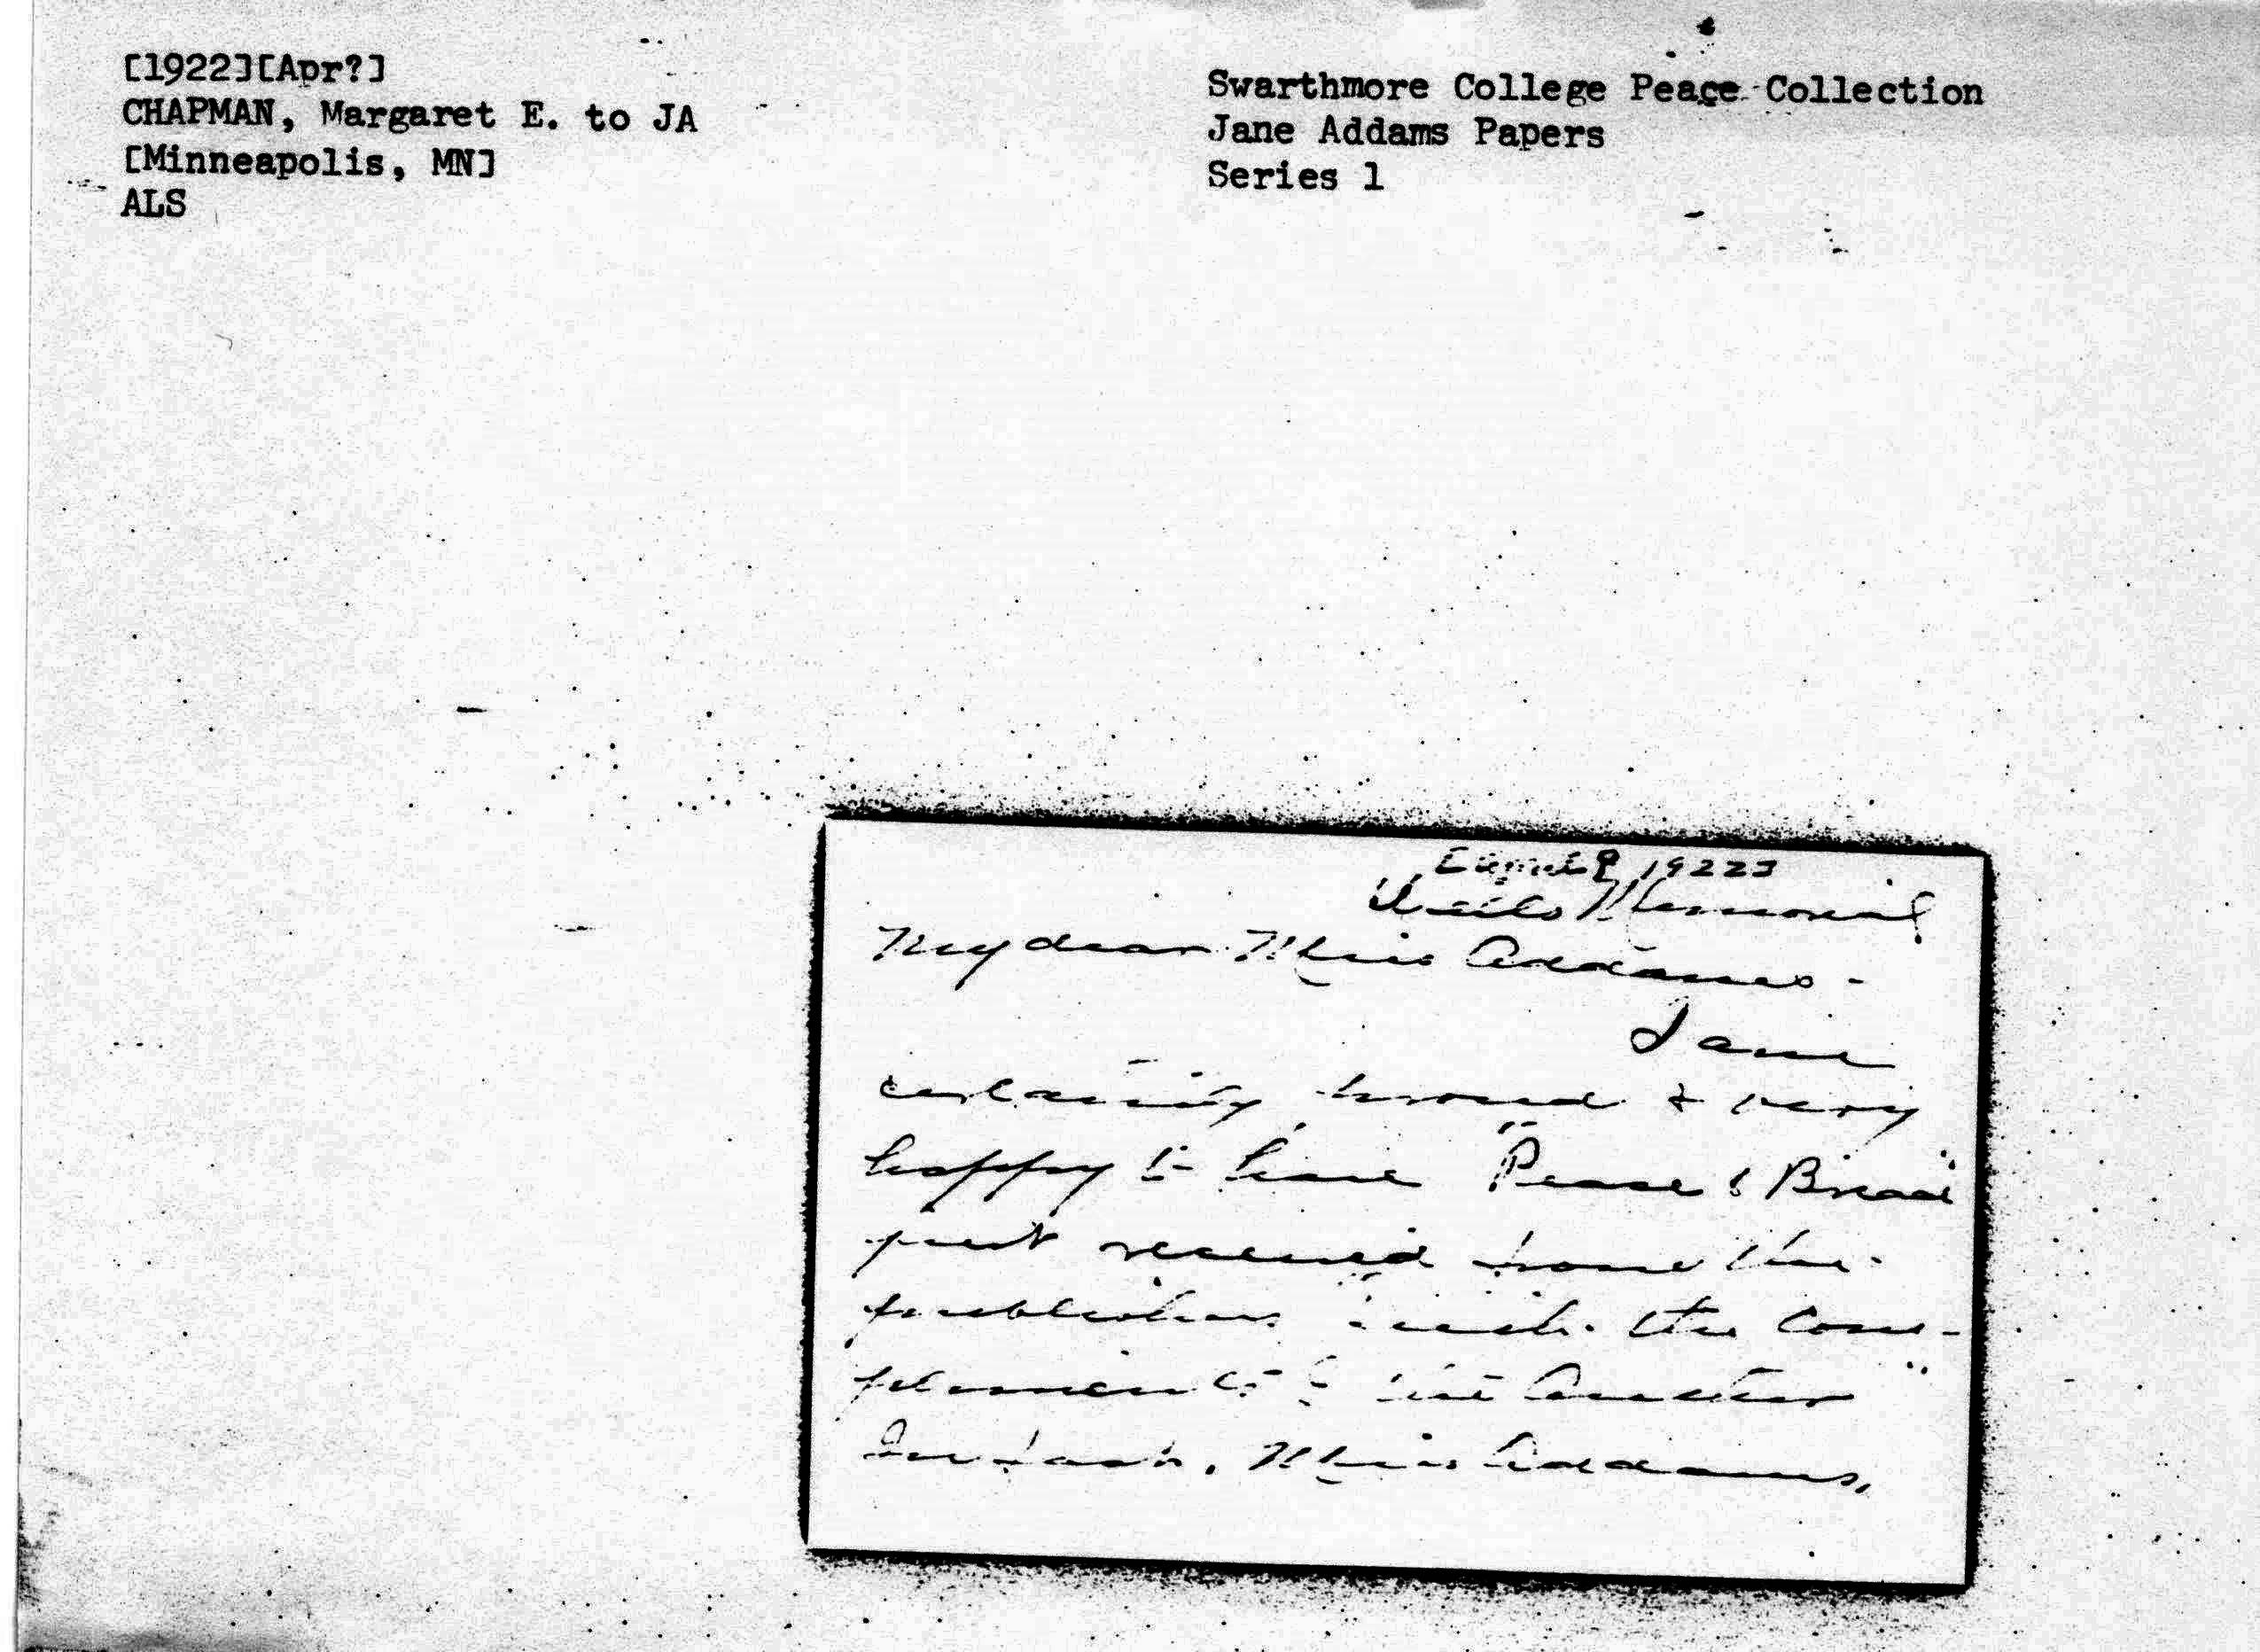 [1922][Apr?]
CHAPMAN, Margaret E. to JA
[Minneapolis, MN]
ALS
Swarthmore College Peace Collection
Jane Addams Papers
Series 1
1922]
Wells Memorial
My dear Miss Addams -
I am
certainly proud & very
happy to have "Peace & Bread"
just received from the
publishers "with the Com-
pliments of the Author"
In fact, Miss Addams,